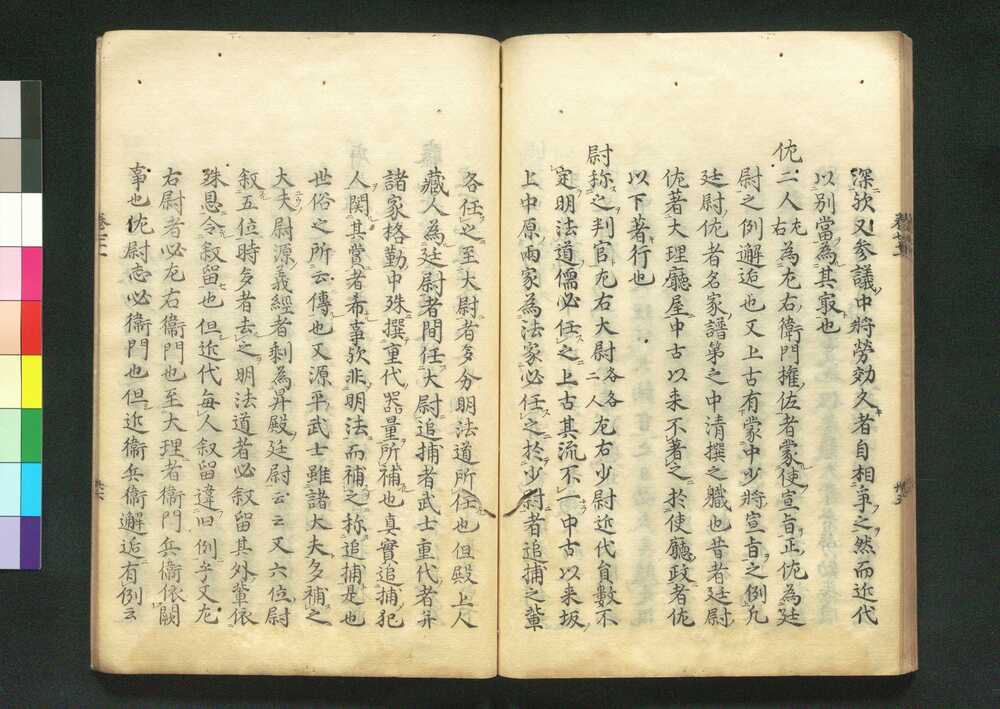 深欤又参議中將勞効久者自相爭之然而近代
以別當為其㝡也
佐二人左右為左右衛門権佐者蒙使宣旨正佐為廷
尉之例邂逅也又上古有蒙中少將宣旨之例凢
廷尉佐者名家譜第之中清撰之職也昔者廷尉
佐著大理廳屋中古以来不著之於使廳政者佐
以下著行也
尉称之判官左右大尉各各二人左右少尉近代負數不
定明法道儒必任之上古其流不一中古以来坂
上中原兩家為法家必任之於少尉者追捕之輩
各任之至大尉者多分明法道所任也但殿上人
藏人為廷尉者間任大尉追捕者武士重代者并
諸家格勤中殊撰重代器量所補也真實追捕犯
人関其嘗者希事欤非明法而補之称追捕是也
世俗之所云傳也又源平武士雖諸大夫多補之
大夫尉源義經者剰為昇殿廷尉云云又六位尉
叙五位時多者去之明法道者必叙留其外輩依
殊恩令叙留也但近代每人叙留違旧例乎又左
右尉者必左右衛門也至大理者衛門兵衛依闕
事也佐尉志必衛門也但近衛兵衛邂逅有例云